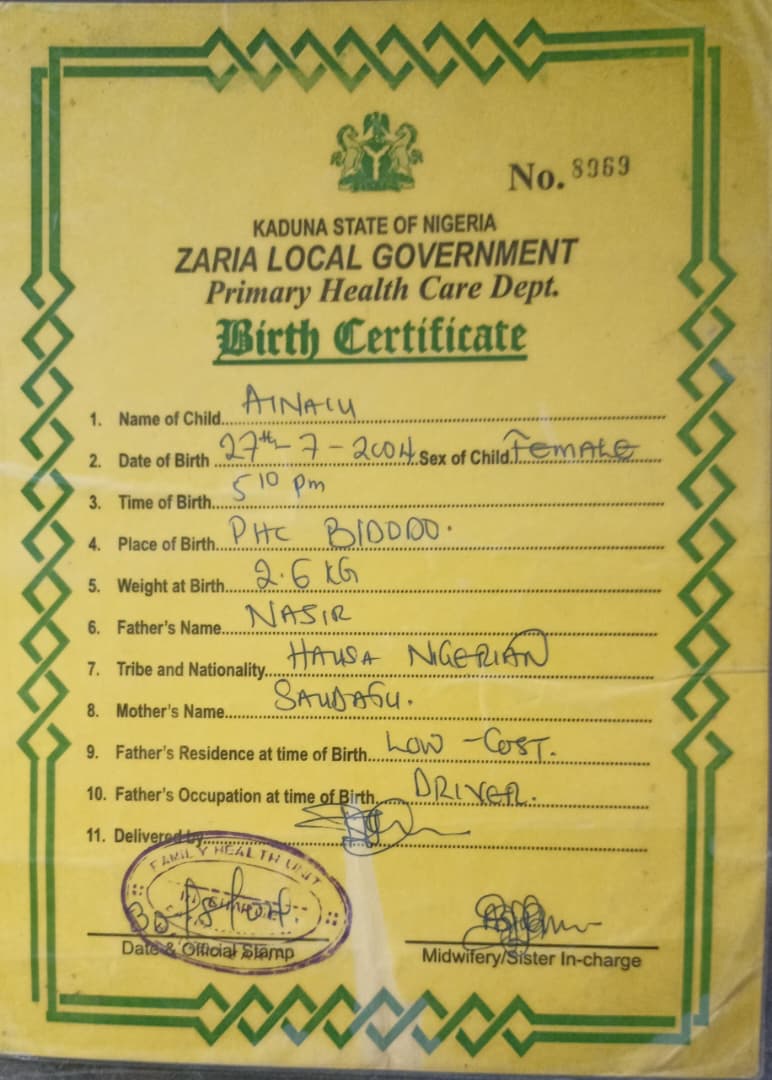 No. 8969
KADUNA STATE OF NIGERIA
ZARIA LOCAL GOVERNMENT
Primary Health Care Dept.
Birth Certificate
1. Name of Child AINAIU
2. Date of Birth 27th-7-2004 Sex of Child Female
3. Time of Birth 5 10 pm
4. Place of Birth PHC BIDDDO.
5. Weight at Birth 2.6 KG
6. Father's Name NASIR
7. Tribe and Nationality HAUSA NIGERIAN
8. Mother's Name
9. Father's Residence at time of Birth LOW-COST.
10. Father's Occupation at time of Birth DRIVER.
11. Delivered by
FAMILY HEALTH UNIT
Date & Official Stamp
Midwifery/Sister In-charge